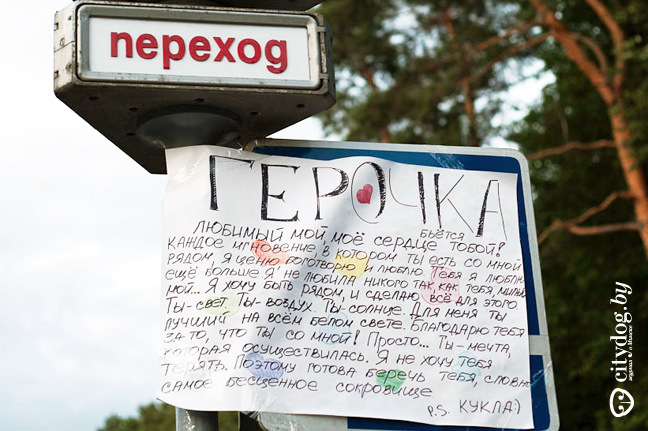 переход
ГЕРОЧКА
ЛЮБИМЫЙ МОЙ, МОЁ СЕРДЦЕ БЬЁТСЯ ТОБОЙ!
КАЖДОЕ МГНОВЕНИЕ, В КОТОРОМ ТЫ ЕСТЬ СО МНОЙ
РЯДОМ, Я ЦЕНЮ БОГОТВОРЮ И ЛЮБЛЮ. ТЕБЯ Я ЛЮБЛЮ
ЕЩЁ БОЛЬШЕ. Я НЕ ЛЮБИЛА НИКОГО ТАК, КАК ТЕБЯ, МИЛЫЙ
МОЙ.. Я ХОЧУ БЫТЬ РЯДОМ, И СДЕЛАЮ ВСЁ ДЛЯ ЭТОГО.
ТЫ-СВЕТ. ТЫ-ВОЗДУХ. ТЫ-СОЛНЦЕ. ДЛЯ МЕНЯ ТЫ
ЛУЧШИЙ НА ВСЁМ БЕЛОМ СВЕТЕ. БЛАГОДАРЮ ТЕБЯ
ЗА-ТО, ЧТО ТЫ СО МНОЙ! ПРОСТО... ТЫ-МЕЧТА,
КОТОРАЯ ОСУЩЕСТВИЛАСЬ. Я НЕ ХОЧУ ТЕБЯ
ТЕРЯТЬ. ПОЭТОМУ ГОТОВА БЕРЕЧЬ ТЕБЯ, СЛОВНО
САМОЕ БЕСЦЕННОЕ СОКРОВИЩЕ
P.S. КУКЛА:)
citydog.by
журнал о Минске